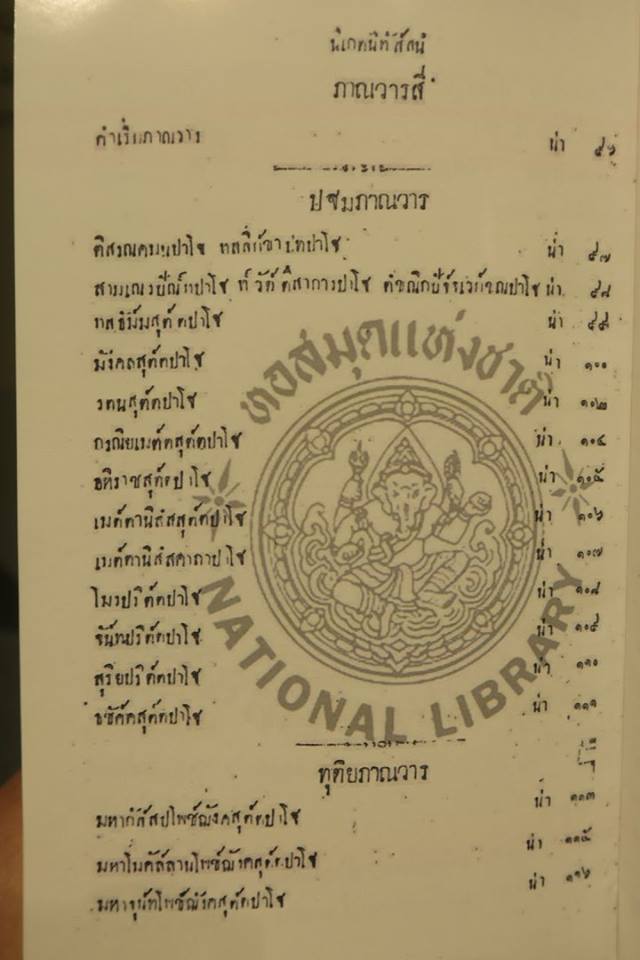 นิเทศนิทัสสนํ
ภาณวารสี่
คำเริ่มภาณวาร น่า ๙๖
ปฐมภาณวาร
ติสรณคมนปาโฐ ทสสิกขาปทปาโฐ น่า ๙๗
สามเณรปัณฺหปาโฐ ทฺวัตฺติสาการปาโฐ ตํขณิกปัจฺจเวกฺขณปาโฐ น่า ๙๘
ทสธัมฺมสุตฺตปาโฐ น่า ๙๙
มังคลสุตฺตปาโฐ น่า ๑๐๐
รตนสุตฺตปาโฐ น่า ๑๐๒
กรณียเมตฺตสุตฺตปาโฐ น่า ๑๐๔
อหิราชสุตฺตปาโฐ น่า ๑๐๕
เมตฺตานิสํสสุตฺตปาโฐ น่า ๑๐๖
เมตฺตานิสํสคาถาปาโฐ น่า ๑๐๗
โมรปริตฺตปาโฐ น่า ๑๐๘
จันฺทปริตฺตปาโฐ น่า ๑๐๙
สุริยปริตฺตปาโฐ น่า ๑๑๐
ธชัคฺคสุตฺตปาโฐ น่า ๑๑๑
ทุติยภาณวาร
มหากัสฺสปโพชฺฌังคสุตฺตปาโฐ น่า ๑๑๓
มหาโมคัลฺลานโพชฺฌังคสุตฺตปาโฐ น่า ๑๑๕
มหาจุนฺทโพชฺฌังคสุตฺตปาโฐ น่า ๑๑๖
หอสมุดแห่งชาติ
NATIONAL LIBRARY